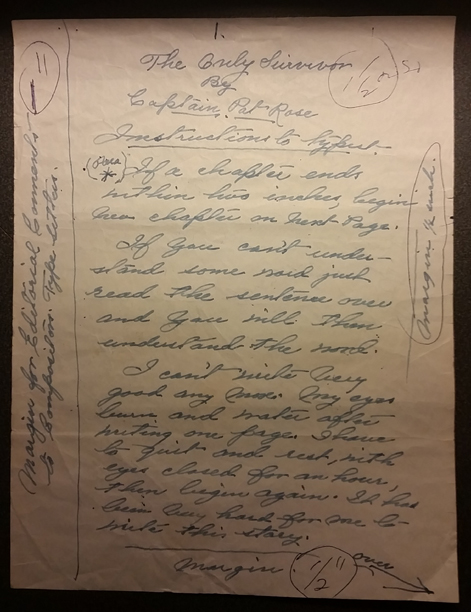 1.
The Only Survivor
By
Captain, Pat Rose
Instructions to typist.
If a chapter ends
within two inches, begin
new chapter on next Page.
If you can't under-
stand some word just
read the sentence over
and you will then
understand the word.
I can't write very
good any more. My eyes
burn and water after
writing one page. I have
to quit and rest, with
eyes closed for an hour,
then begin again. It has
been very hard for me to
write this story.
Margin 1/2"
over
Margin for Editorial Comments
to Compositor. Type within.
1"
1/2
Margin 1/2 inch.